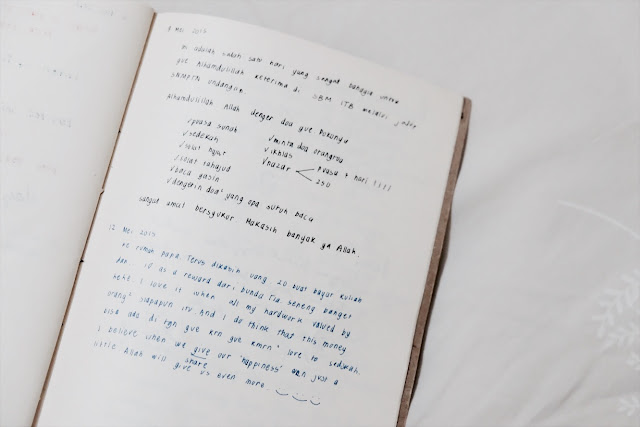 9 Mei 2013
ini adalah salah satu hari yang sangat bahagia untuk
gue Alhamdulillah keterima di SBM ITB melalui jalur
SNMPTN undangan
Alhamdulillah Allah denger doa gue punya
√puasa sunah
√sedekah
√solat hajat
√solat tahajud
√baca yasin
√dengerin doa² yang opa suruh baca
√minta doa orangtua
√ikhlas
√nazar
puasa 7 hari !!!!
250
sangat amat bersyukur. Makasih banyak ya Allah.
12 Mei 2013
ke rumah papa. Terus dikasih uang 20 buat bayar kuliah
dan 10 as a reward dari bunda Tia. Seneng banget
hehe. I love it when all my hardwork valued by
orang² siapapun itu And I do think that this money
bisa ada di tgn gue krn gue kmrn² love to sedekah.
I believe when we give our "happiness" even just a
share
little Allah will give us even more.